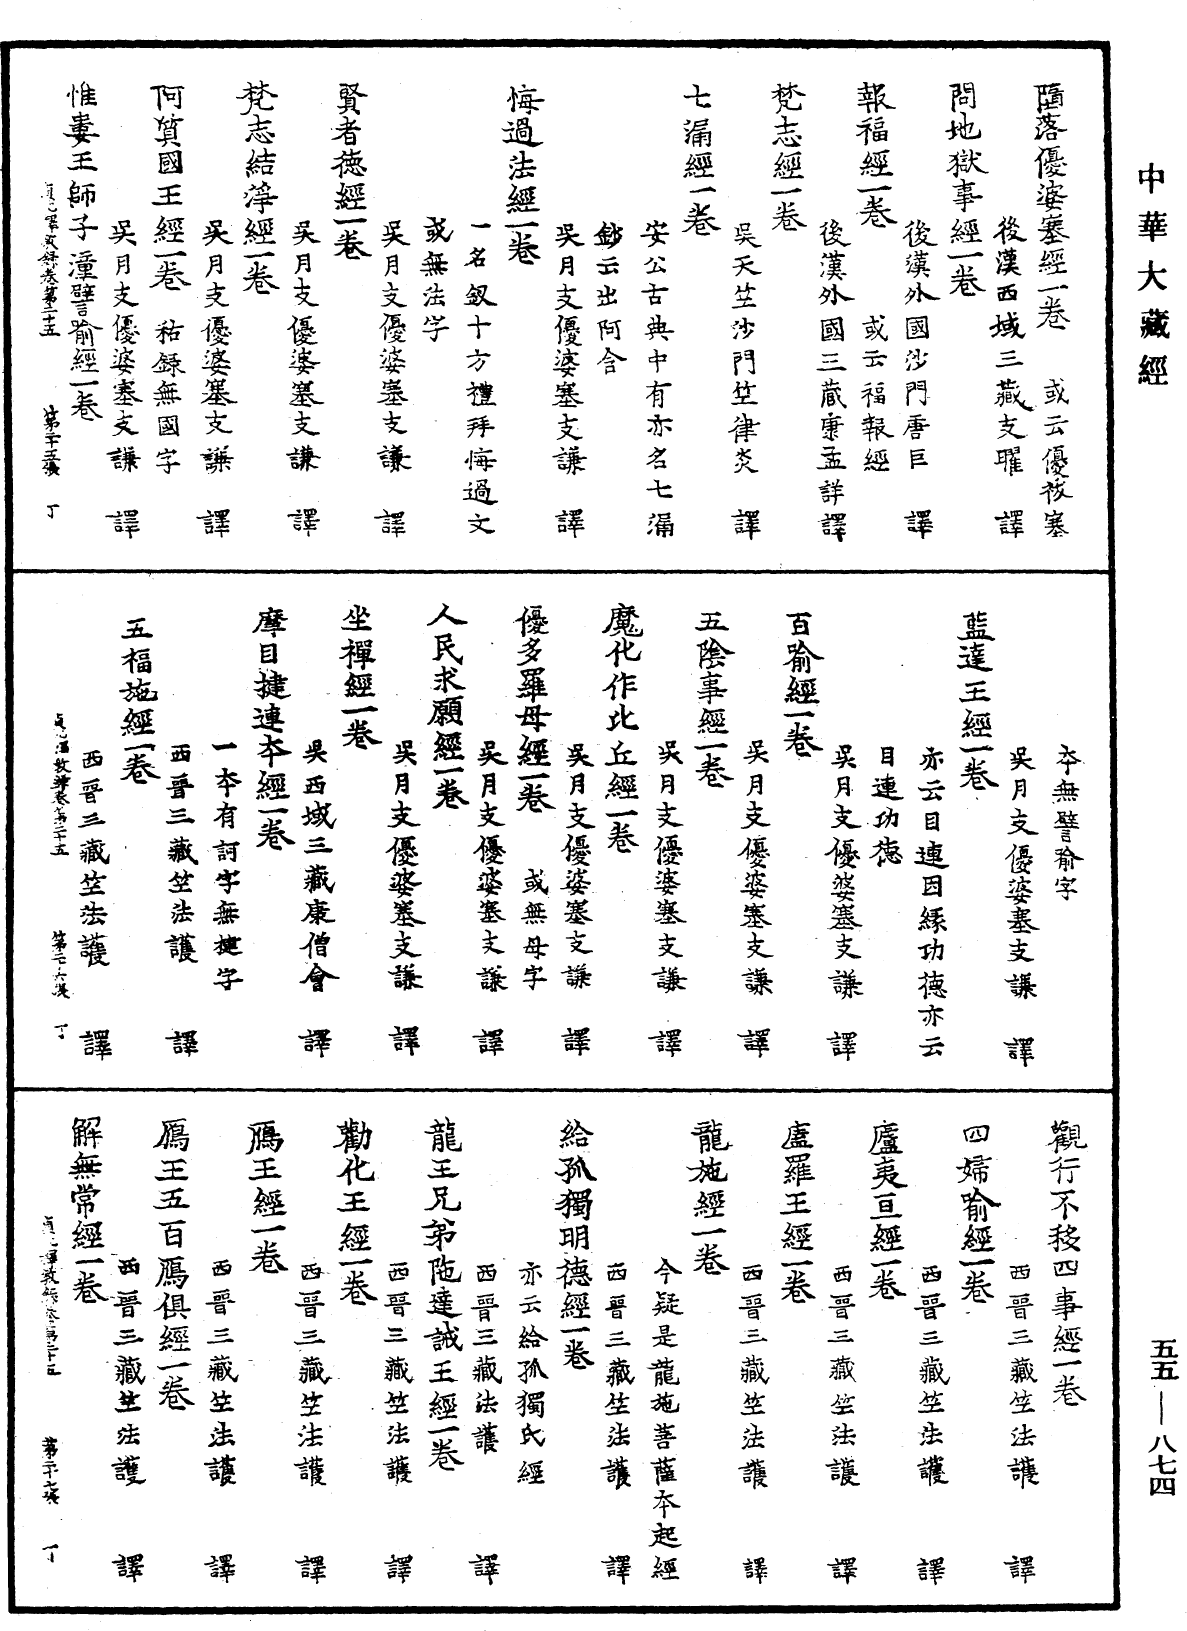 中華大藏經
墮落優婆塞經一卷　或云優婆塞
後漢西域三藏支曜　譯
問地獄事經一卷
後漢外國沙門康巨　譯
報福經一卷　或云福報經
後漢外國三藏康孟詳譯
梵志經一卷
吳天竺沙門竺律炎　譯
七漏經一卷
安公古典中有亦名七漏
鈔云出阿含
吳月支優婆塞支謙　譯
悔過法經一卷
一名叙十方禮拜悔過文
或無法字
吳月支優婆塞支謙　譯
賢者德經一卷
吳月支優婆塞支謙　譯
梵志結淨經一卷
吳月支優婆塞支謙　譯
阿質國王經一卷　祐録無國字
吳月支優婆塞支謙　譯
惟婁王師子湩譬喻經一卷
貞元釋教錄卷第二十五　第二十五張　丁
本無譬喻字
吳月支優婆塞支謙　譯
藍達王經一卷
亦云目連因緣功德亦云
目連功德
吳月支優婆塞支謙　譯
百喻經一卷
吳月支優婆塞支謙　譯
五陰事經一卷
吳月支優婆塞支謙　譯
魔化作比丘經一卷
吳月支優婆塞支謙　譯
優多羅母經一卷　或無母字
吳月支優婆塞支謙　譯
人民求願經一卷
吳月支優婆塞支謙　譯
坐禪經一卷
吳西域三藏康僧會　譯
摩目揵連本經一卷
一本有訶字無揵字
西晉三藏竺法護　譯
五福施經一卷
西晉三藏竺法護　譯
貞元釋教錄卷第二十五　第二十六張　丁
觀行不移四事經一卷
西晉三藏竺法護　譯
四婦喻經一卷
西晉三藏竺法護　譯
廬夷亘經一卷
西晉三藏竺法護　譯
盧羅王經一卷
西晉三藏竺法護　譯
龍施經一卷
今疑是龍施菩薩本起經
西晉三藏竺法護　譯
給孤獨明德經一卷
亦云給孤獨氏經
西晉三藏法護　譯
龍王兄弟陁達誡王經一卷
西晉三藏竺法護　譯
勸化王經一卷
西晉三藏竺法護　譯
鴈王經一卷
西晉三藏竺法護　譯
鴈王五百鴈俱經一卷
西晉三藏竺法護　譯
解無常經一卷
貞元釋教錄卷第二十五　第二十七張　丁
五五—八七四